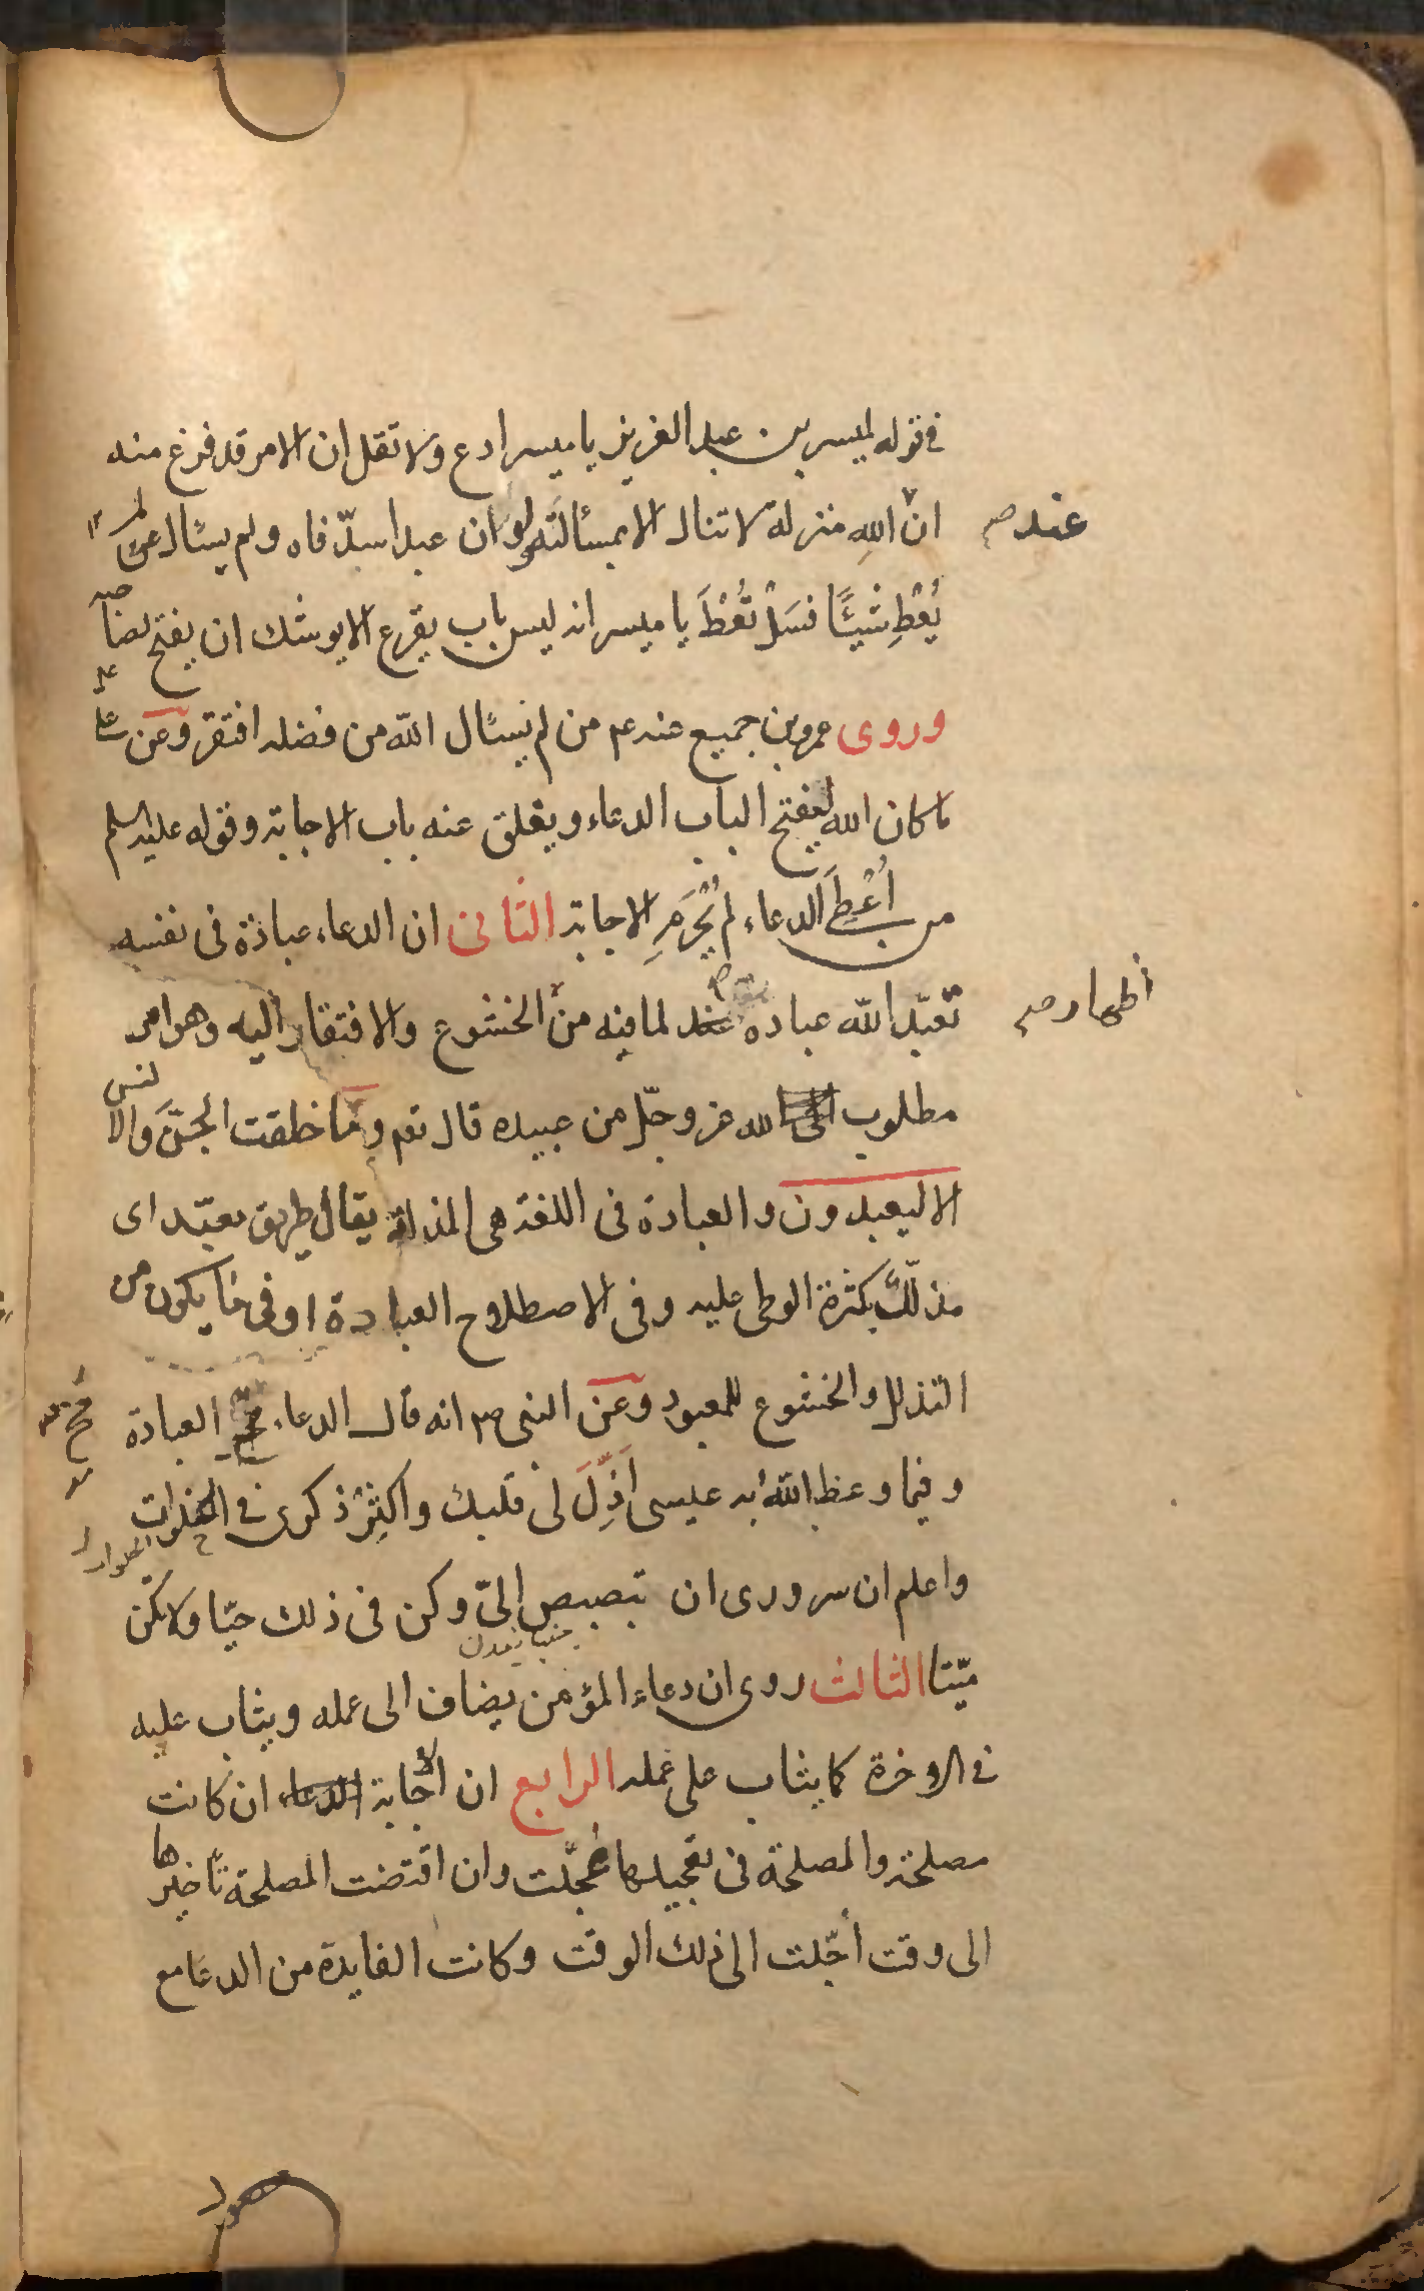 في قوله لميسر بن عبد العزيز يا ميسر ادع ولا تقل ان الامر قد فرغ منه
ان الله منزلة لا تنال الا بمسألته ولو ان عبدا سدّ فاه ولم يسئال لم
عند صح
يُعْطِ شيئًا فسَلْ تُعْطَ يا ميسر انه ليس باب يقرع الا يوشك ان يفتح لصاحبه
وروى عمرو بن جميع عنه عم من لم يسئال الله من فضله افتقر وعن علي
ما كان الله ليفتح الباب الدعاء ويغلق عنه باب الاجابة وقوله عليه السلم
من أُعْطِيَ الدعاء لم يُحْرَمِ الاجابة الثانى ان الدعاء عبادة فى نفسه
تعبّد الله عباده عند لما فيه من الخشوع والافتقار اليه وهو امر
اظهار صح
مطلوب الله عز وجلّ من عبيده قال تعم وما خلقت الجنّ والانس
الا ليعبدون والعبادة فى اللغة هى المذلة يقال طريق معبّد اى
مذلّل بكثرة الوطى عليه وفى الاصطلاح العبادة اوفى ما يكون من
التذلل والخشوع للمعبود وعن النبى ص انه قال الدعاء مخ العبادة
مخ
وفيما وعظ الله به عيسى أَذِلَّ لى قلبك واكثِرْ ذكرى في الخلوات
واعلم ان سرورى ان تبصبص الىّ وكن فى ذلك حيّا ولا تكن
ميّتا الثالث روى ان دعاء المؤمن يضاف الى عمله ويثاب عليه
فى الاخرة كما يثاب على عمله الرابع ان الاجابة الدعاء ان كانت
مصلحة والمصلحة فى تعجيلها عُجّلت وان اقتضت المصلحة تأخيرها
الى وقت أجّلت الى ذلك الوقت وكانت الفايدة من الدعا مع